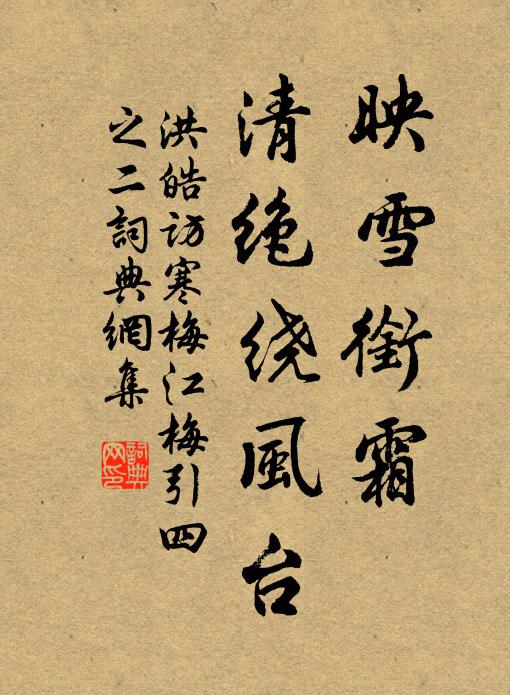 映雪銜霜
清绝绕風台
洪皓访寒梅江梅引四
之二詞典網集
詞典网印